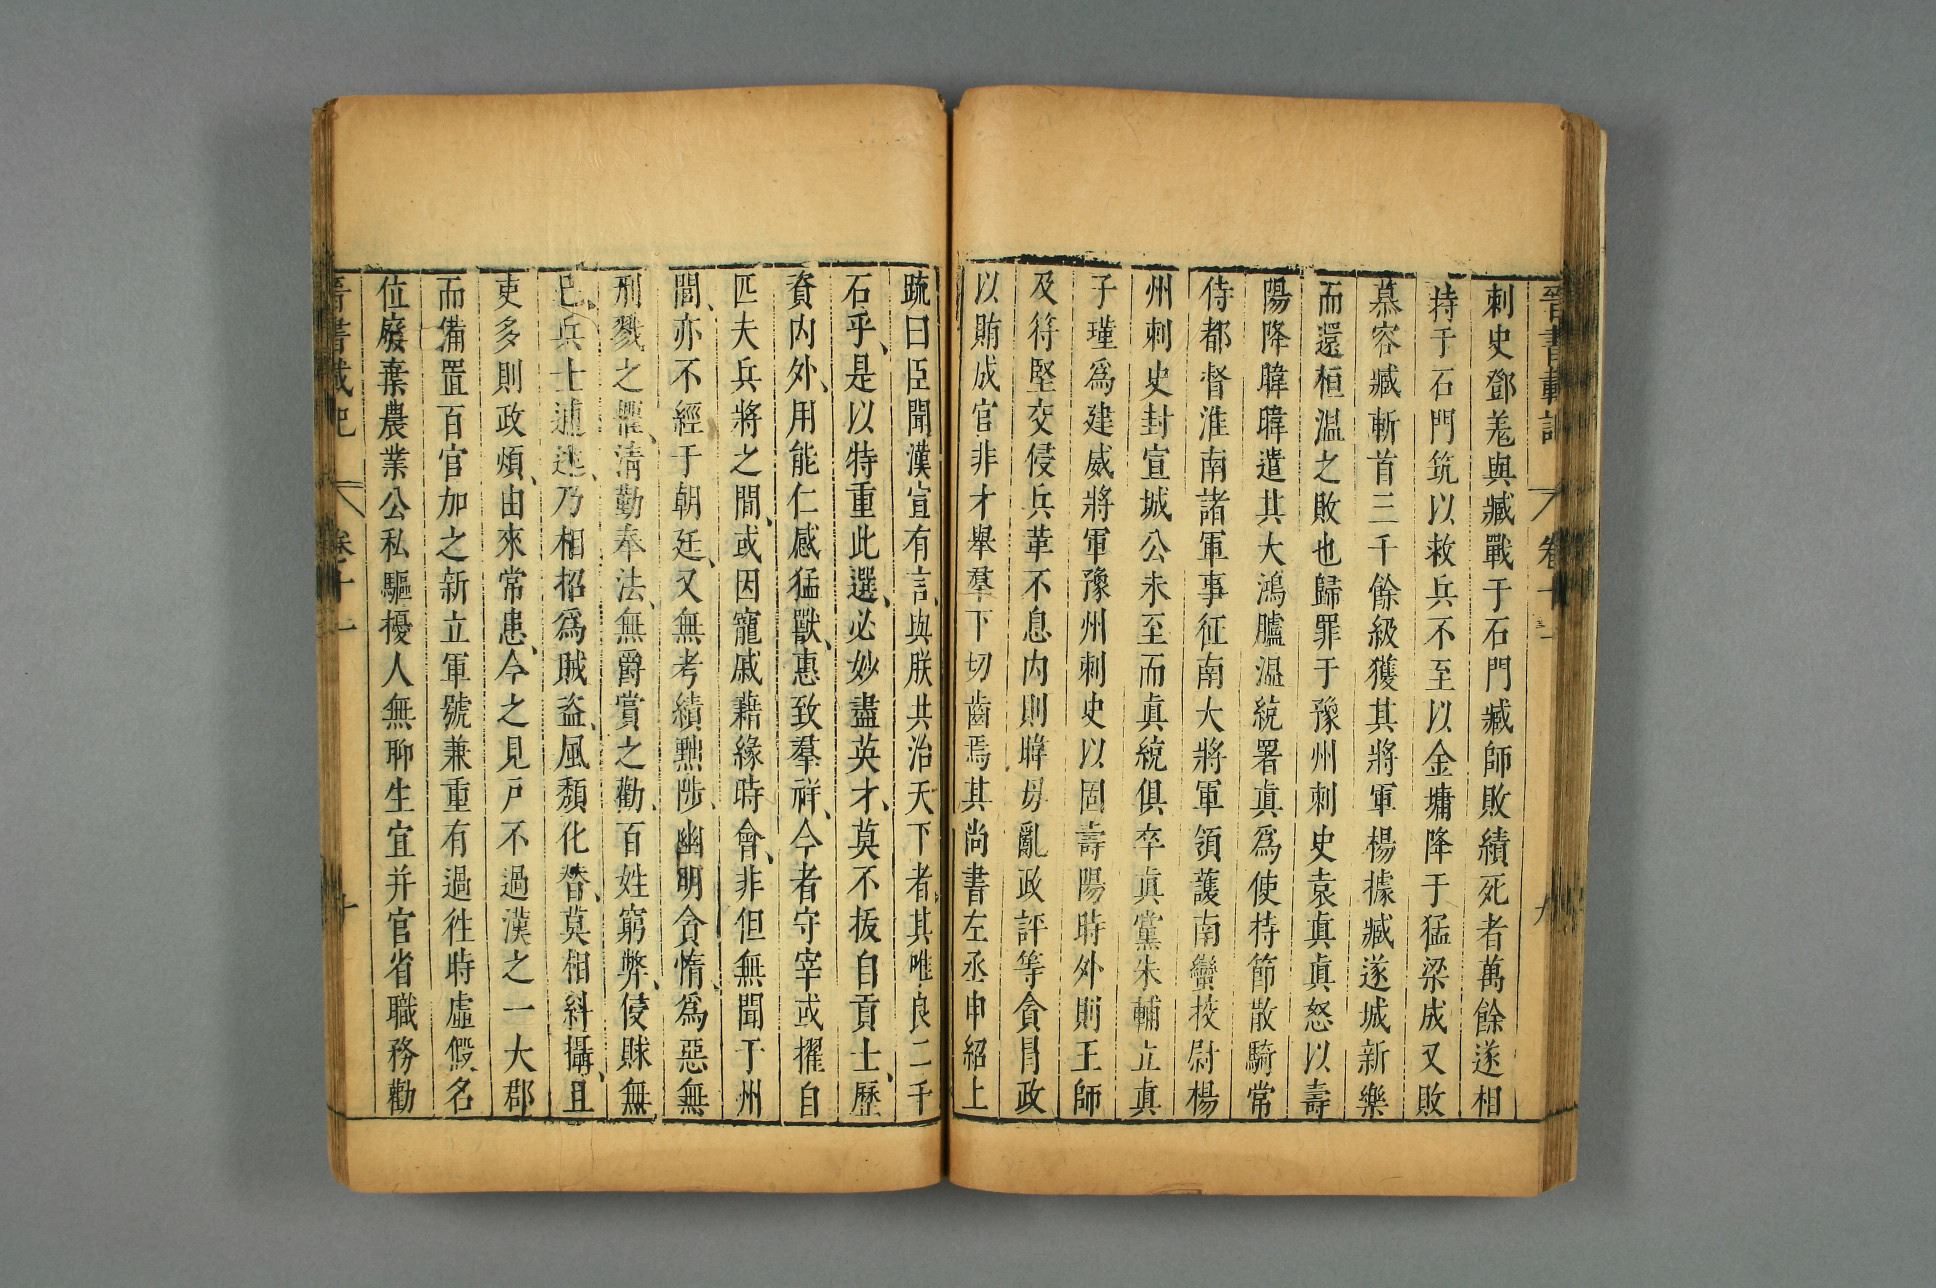 晉書載記 卷十一 九
刺史鄧羌與臧戰于石門臧師敗績死者萬餘遂相
持于石門筑以救兵不至以金墉降于猛梁成又敗
慕容臧斬首三千餘級獲其將軍楊據臧遂城新樂
而還桓溫之敗也歸罪于豫州刺史袁眞眞怒以壽
陽降暐暐遣其大鴻臚溫統署眞爲使持節散騎常
侍都督淮南諸軍事征南大將軍領護南蠻挍尉楊
州刺史封宣城公未至而眞統俱卒眞黨朱輔立眞
子瑾爲建威將軍豫州刺史以固壽陽時外則王師
及苻堅交侵兵革不息内則暐母亂政評等貪冒政
以賄成官非才舉羣下切齒焉其尚書左丞申紹上
疏曰臣聞漢宣有言與朕共治天下者其唯良二千
石乎是以特重此選必妙盡英才莫不拔自貢士歷
資内外用能仁感猛獸惠致羣祥今者守宰或擢自
匹夫兵將之間或因寵戚藉緣時會非但無聞于州
閭亦不經于朝廷又無考績黜陟幽明貪惰爲惡無
刑戮之懼清勤奉法無爵賞之勸百姓窮弊侵賕無
已兵士逋逃乃相招爲賊盗風頽化替莫相糾攝且
吏多則政煩由來常患今之見戸不過漢之一大郡
而備置百官加之新立軍號兼重有過徃時虛假名
位廢棄農業公私驅擾人無聊生宜并官省職務勸
晉書載記 卷十一 十